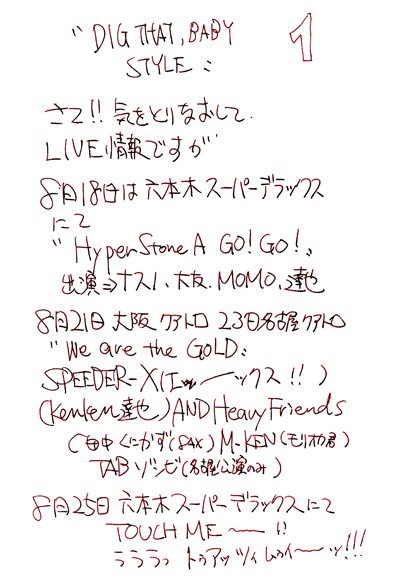 "DIG THAT, BABY 1
STYLE"
さて!! 気をとりなおして
LIVE情報ですが
8月18日は六本木スーパーデラックス
にて
"HyperStone A GO! GO!"
出演⇒ナスノ、大友、MOMO、達也
8月21日 大阪クアトロ 23日名古屋クアトロ
"We are the GOLD"
SPEEDER-X(エッ〜ックス!!)
(KenKen達也) AND Heavy Friends
(田中くにかず(SAX) M-KEN(モリオカ君)
TABゾンビ(名古屋公演のみ)
8月25日 六本木スーパーデラックスにて
TOUCH ME〜!!
ララララ トゥアッツィムゥイ〜ッ!!!